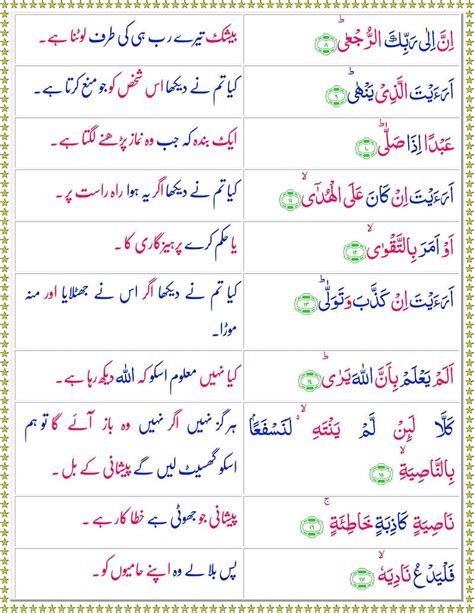 اِنَّ اِلٰى رَبِّكَ الرُّجْعٰىؕ ﴿٨﴾
بیشک تیرے رب ہی کی طرف لوٹنا ہے۔
اَرَءَيْتَ الَّذِىْ يَنْهٰىؕ ﴿٩﴾
کیا تم نے دیکھا اس شخص کو جو منع کرتا ہے۔
عَبْدًا اِذَا صَلّٰىؕ ﴿١٠﴾
ایک بندہ کہ جب وہ نماز پڑھنے لگتا ہے۔
اَرَءَيْتَ اِنْ كَانَ عَلَى الْهُدٰٓىۙ ﴿١١﴾
کیا تم نے دیکھا اگر یہ ہوا راہ راست پر۔
اَوْ اَمَرَ بِالتَّقْوٰىۙ ﴿١٢﴾
یا حکم کرے پرہیزگاری کا۔
اَرَءَيْتَ اِنْ كَذَّبَ وَتَوَلّٰىؕ ﴿١٣﴾
کیا تم نے دیکھا اگر اس نے جھٹلایا اور منہ
موڑا۔
اَلَمْ يَعْلَمْ بِاَنَّ اللّٰهَ يَرٰىؕ ﴿١٤﴾
کیا نہیں معلوم اسکو کہ اللہ دیکھ رہا ہے۔
كَلَّا لَىِٕنْ لَّمْ يَنْتَهِ ۙ لَنَسْفَعًۢا
بِالنَّاصِيَةِۙ ﴿١٥﴾
ہرگز نہیں اگر نہیں وہ باز آئے گا تو ہم
اسکو گھسیٹ لیں گے پیشانی کے بل۔
نَاصِيَةٍ كَاذِبَةٍ خَاطِئَةٍۚ ﴿١٦﴾
پیشانی جو جھوٹی ہے خطا کار ہے۔
فَلْيَدْعُ نَادِيَهٗۙ ﴿١٧﴾
پس بلا لے وہ اپنے حامیوں کو۔